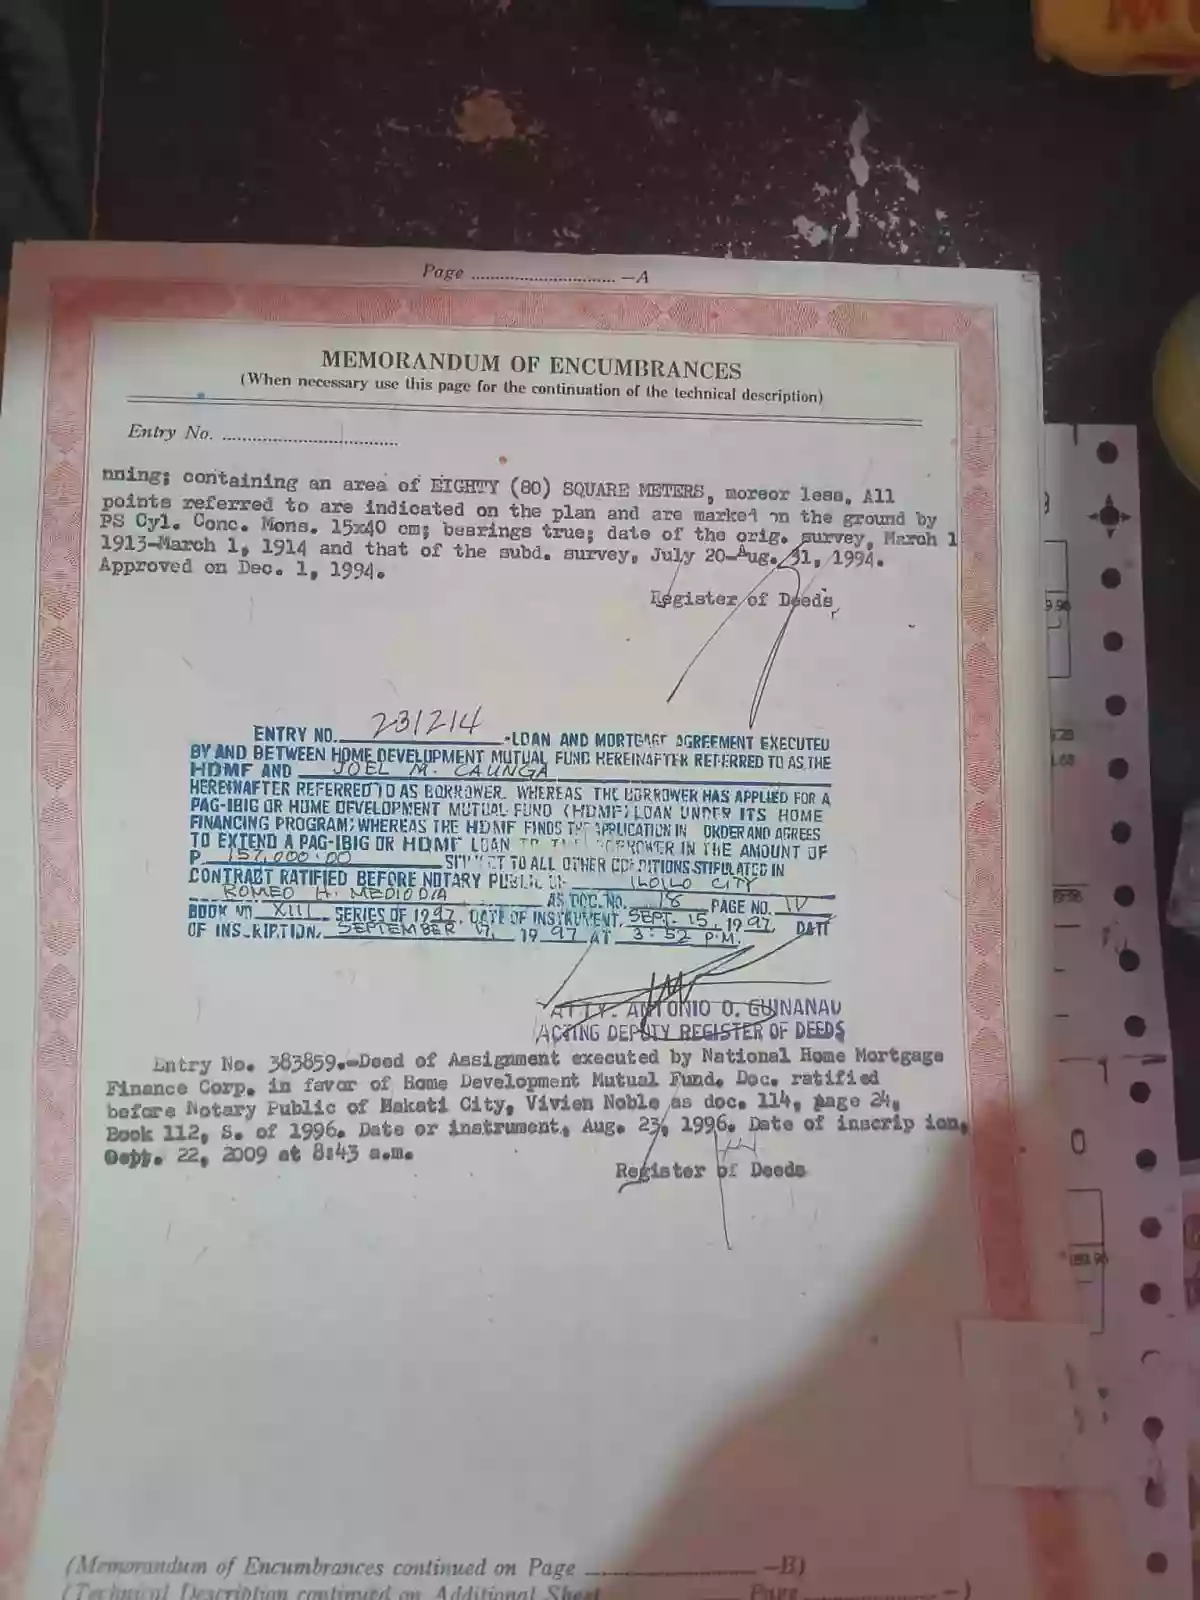 Page .............................. —A
MEMORANDUM OF ENCUMBRANCES
(When necessary use this page for the continuation of the technical description)
Entry No. ...................................
nning; containing an area of EIGHTY (80) SQUARE METERS, moreor less. All
points referred to are indicated on the plan and are marked on the ground by
PS Cyl. Conc. Mons. 15x40 cm; bearings true; date of the orig. survey, March 1
1913-March 1, 1914 and that of the subd. survey, July 20-Aug. 31, 1994.
Approved on Dec. 1, 1994.
Register of Deeds
ENTRY NO. 231214 -LOAN AND MORTGAGE AGREEMENT EXECUTED
BY AND BETWEEN HOME DEVELOPMENT MUTUAL FUND HEREINAFTER REFERRED TO AS THE
HDMF AND JOEL M. CAUNGA
HEREINAFTER REFERRED TO AS BORROWER. WHEREAS THE BORROWER HAS APPLIED FOR A
PAG-IBIG OR HOME DEVELOPMENT MUTUAL FUND (HDMF) LOAN UNDER ITS HOME
FINANCING PROGRAM; WHEREAS THE HDMF FINDS THE APPLICATION IN ORDER AND AGREES
TO EXTEND A PAG-IBIG OR HDMF LOAN TO THE BORROWER IN THE AMOUNT OF
P 157,000.00 SUBJECT TO ALL OTHER CONDITIONS STIPULATED IN
CONTRACT RATIFIED BEFORE NOTARY PUBLIC OF ILOILO CITY
ROMEO H. MEDIODIA AS DOC. NO. 18 PAGE NO. IV
BOOK NO. XIII SERIES OF 1997. DATE OF INSTRUMENT. SEPT. 15, 1997 DATE
OF INSCRIPTION. SEPTEMBER 17, 1997 AT 3:52 P.M.
ATTY. ANTONIO O. GUINANAU
ACTING DEPUTY REGISTER OF DEEDS
Entry No. 383859.-Deed of Assignment executed by National Home Mortgage
Finance Corp. in favor of Home Development Mutual Fund. Doc. ratified
before Notary Public of Makati City, Vivien Noble as doc. 114, page 24,
Book 112, S. of 1996. Date or instrument, Aug. 23, 1996. Date of inscrip ion,
22, 2009 at 8:43 a.m.
Register of Deeds
(Memorandum of Encumbrances continued on Page .............................. —B)
(Technical Description continued on Additional Sheet Page .................... —)